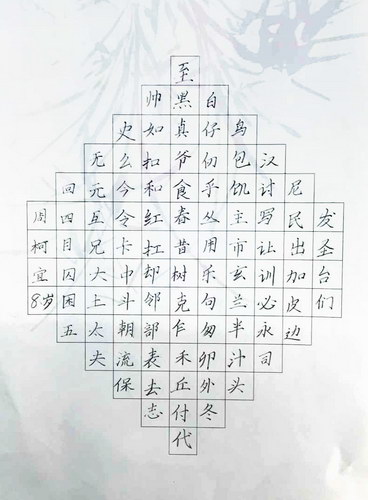 至
帅黑白
史如真仔鸟
无么扣爷仞包汉
回元今和食乎饥讨尼
周四互令红春丛主写民发
柯目兄卡扛昔用市让出圣
宜囚大中郡树乐玄训加台
8岁困上斗邻克句兰必皮们
五太朝部乍匆半永边
夫流表禾卯汁司
保去丘外头
志付冬
代